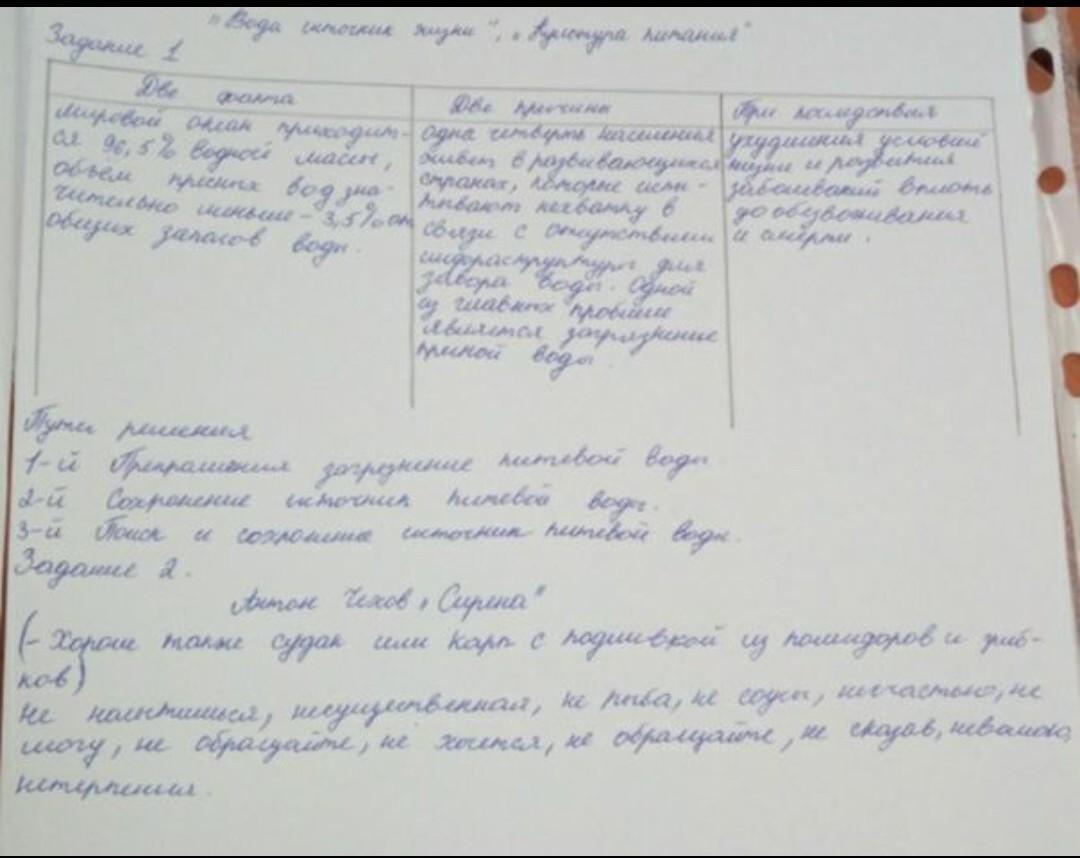 "Вода источник жизни", "Культура питания"
Задание 1
Две факта
Мировой океан приходит-
ся 96,5% водной массы,
объём пресных вод зна-
чительно меньше - 3,5% от
общих запасов воды.
Две причины
одна четверть населения
живёт в развивающихся
странах, которые испы-
тывают нехватку в
связи с отсутствием
инфраструктуры для
забора воды. Одной
из главных проблем
является загрязнение
пресной воды.
Три последствия
ухудшения условий
жизни и развития
заболеваний вплоть
до обезвоживания
и смерти.
Пути решения
1-й Прекращения загрезнение питевой воды
2-й Сохронение источник питевой воды.
3-й Поиск и сохронение источник питевой воды.
Задание 2.
Антон Чехов "Сирена"
(- Хорош также судак или карп с подливкой из помидоров и гриб-
ков)
Не насытишься, несущественная, не рыба, не соусы, несчастью, не
могу, не обращайте, не хочется, не обращайте, не сказав,
нетерпения.